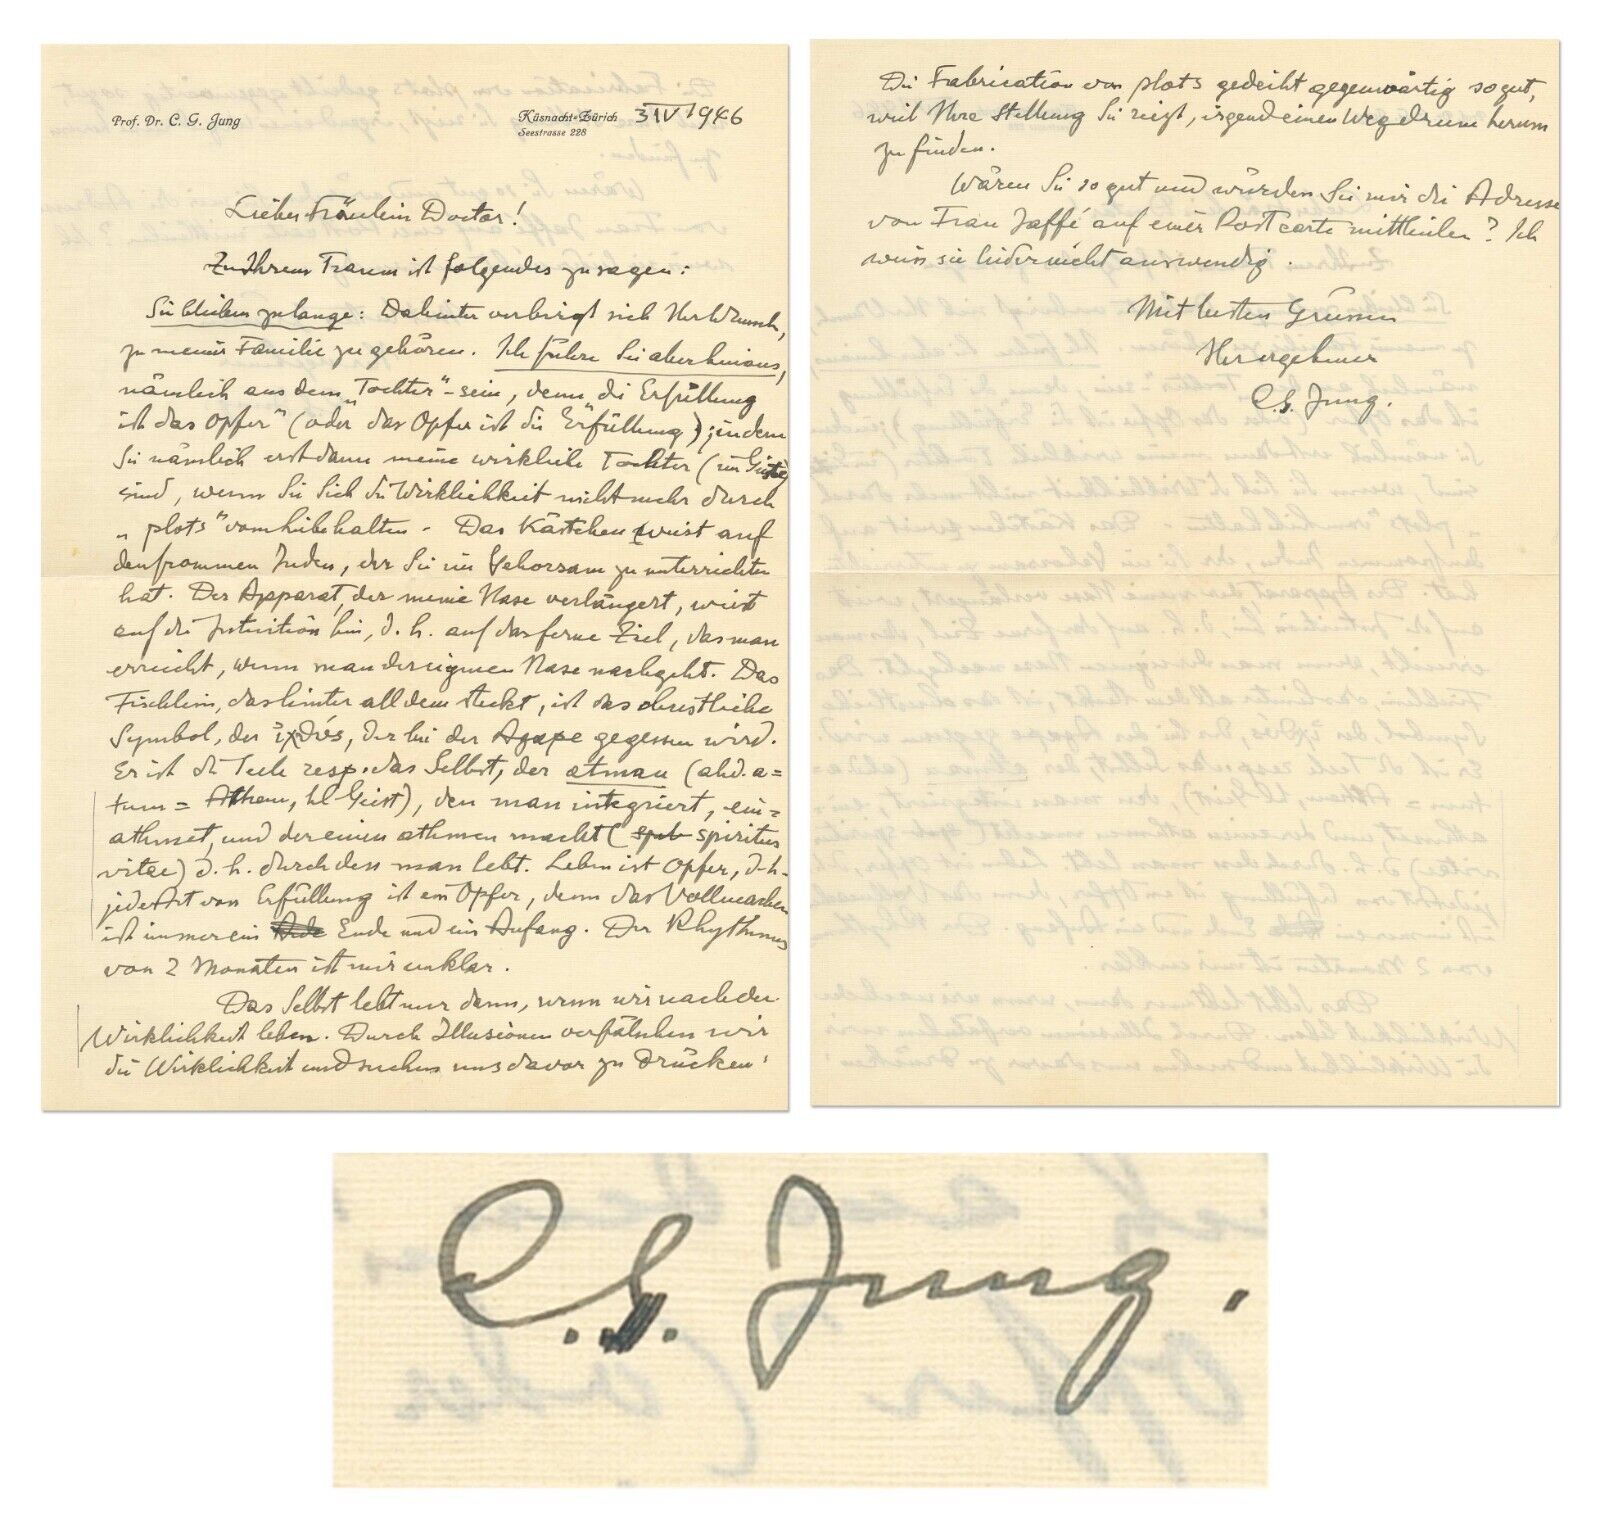 Prof. Dr. C. G. Jung
Küsnacht-Zürich 3 IV 1946
Seestrasse 228
Liebes Fräulein Doctor!
Zu Ihrem Traum ist folgendes zu sagen:
Sie bleiben zu lange: Dahinter verbirgt sich Ihr Wunsch,
zu meiner Familie zu gehören. Ich führe Sie aber hinaus,
nämlich aus dem „Tochter"-sein, denn „die Erfüllung
ist das Opfer" (oder das Opfer ist die Erfüllung"); indem
Sie nämlich erst dann meine wirkliche Tochter (im Geiste)
sind, wenn Sie Sich die Wirklichkeit nicht mehr durch
„plots" vom Leibe halten. Das Kästchen weist auf
den frommen Juden, der Sie im Gehorsam zu unterrichten
hat. Der Apparat, der meine Nase verlängert, weist
auf die Intuition hin, d. h. auf das ferne Ziel, das man
erreicht, wenn man der eigenen Nase nachgeht. Das
Fischlein, das hinter all dem steckt, ist das christliche
Symbol, der ἰχθύς, der bei der Agape gegessen wird.
Er ist die Seele resp. das Selbst, der atman (ahd. a=
tum = Athem, hl. Geist), den man integriert, ein=
athmet, und der einen athmen macht (spiritus
vitae) d. h. durch den man lebt. Leben ist Opfer, d. h.
jede Art von Erfüllung ist ein Opfer, denn das Vollmachen
ist immer ein Ende und ein Anfang. Der Rhythmus
von 2 Monaten ist mir unklar.
Das Selbst lebt nur dann, wenn wir nach der
Wirklichkeit leben. Durch Illusionen verfälschen wir
die Wirklichkeit und suchen uns davor zu drücken.
Die Fabrication von plots gedeiht gegenwärtig so gut,
weil Ihre Stellung Sie reizt, irgend einen Weg drum herum
zu finden.
Wären Sie so gut und würden Sie mir die Adresse
von Frau Jaffé auf einer Postcarte mittheilen? Ich
weiss sie leider nicht auswendig.
Mit besten Grüssen
Ihr ergebener
C. G. Jung.
C. G. Jung.